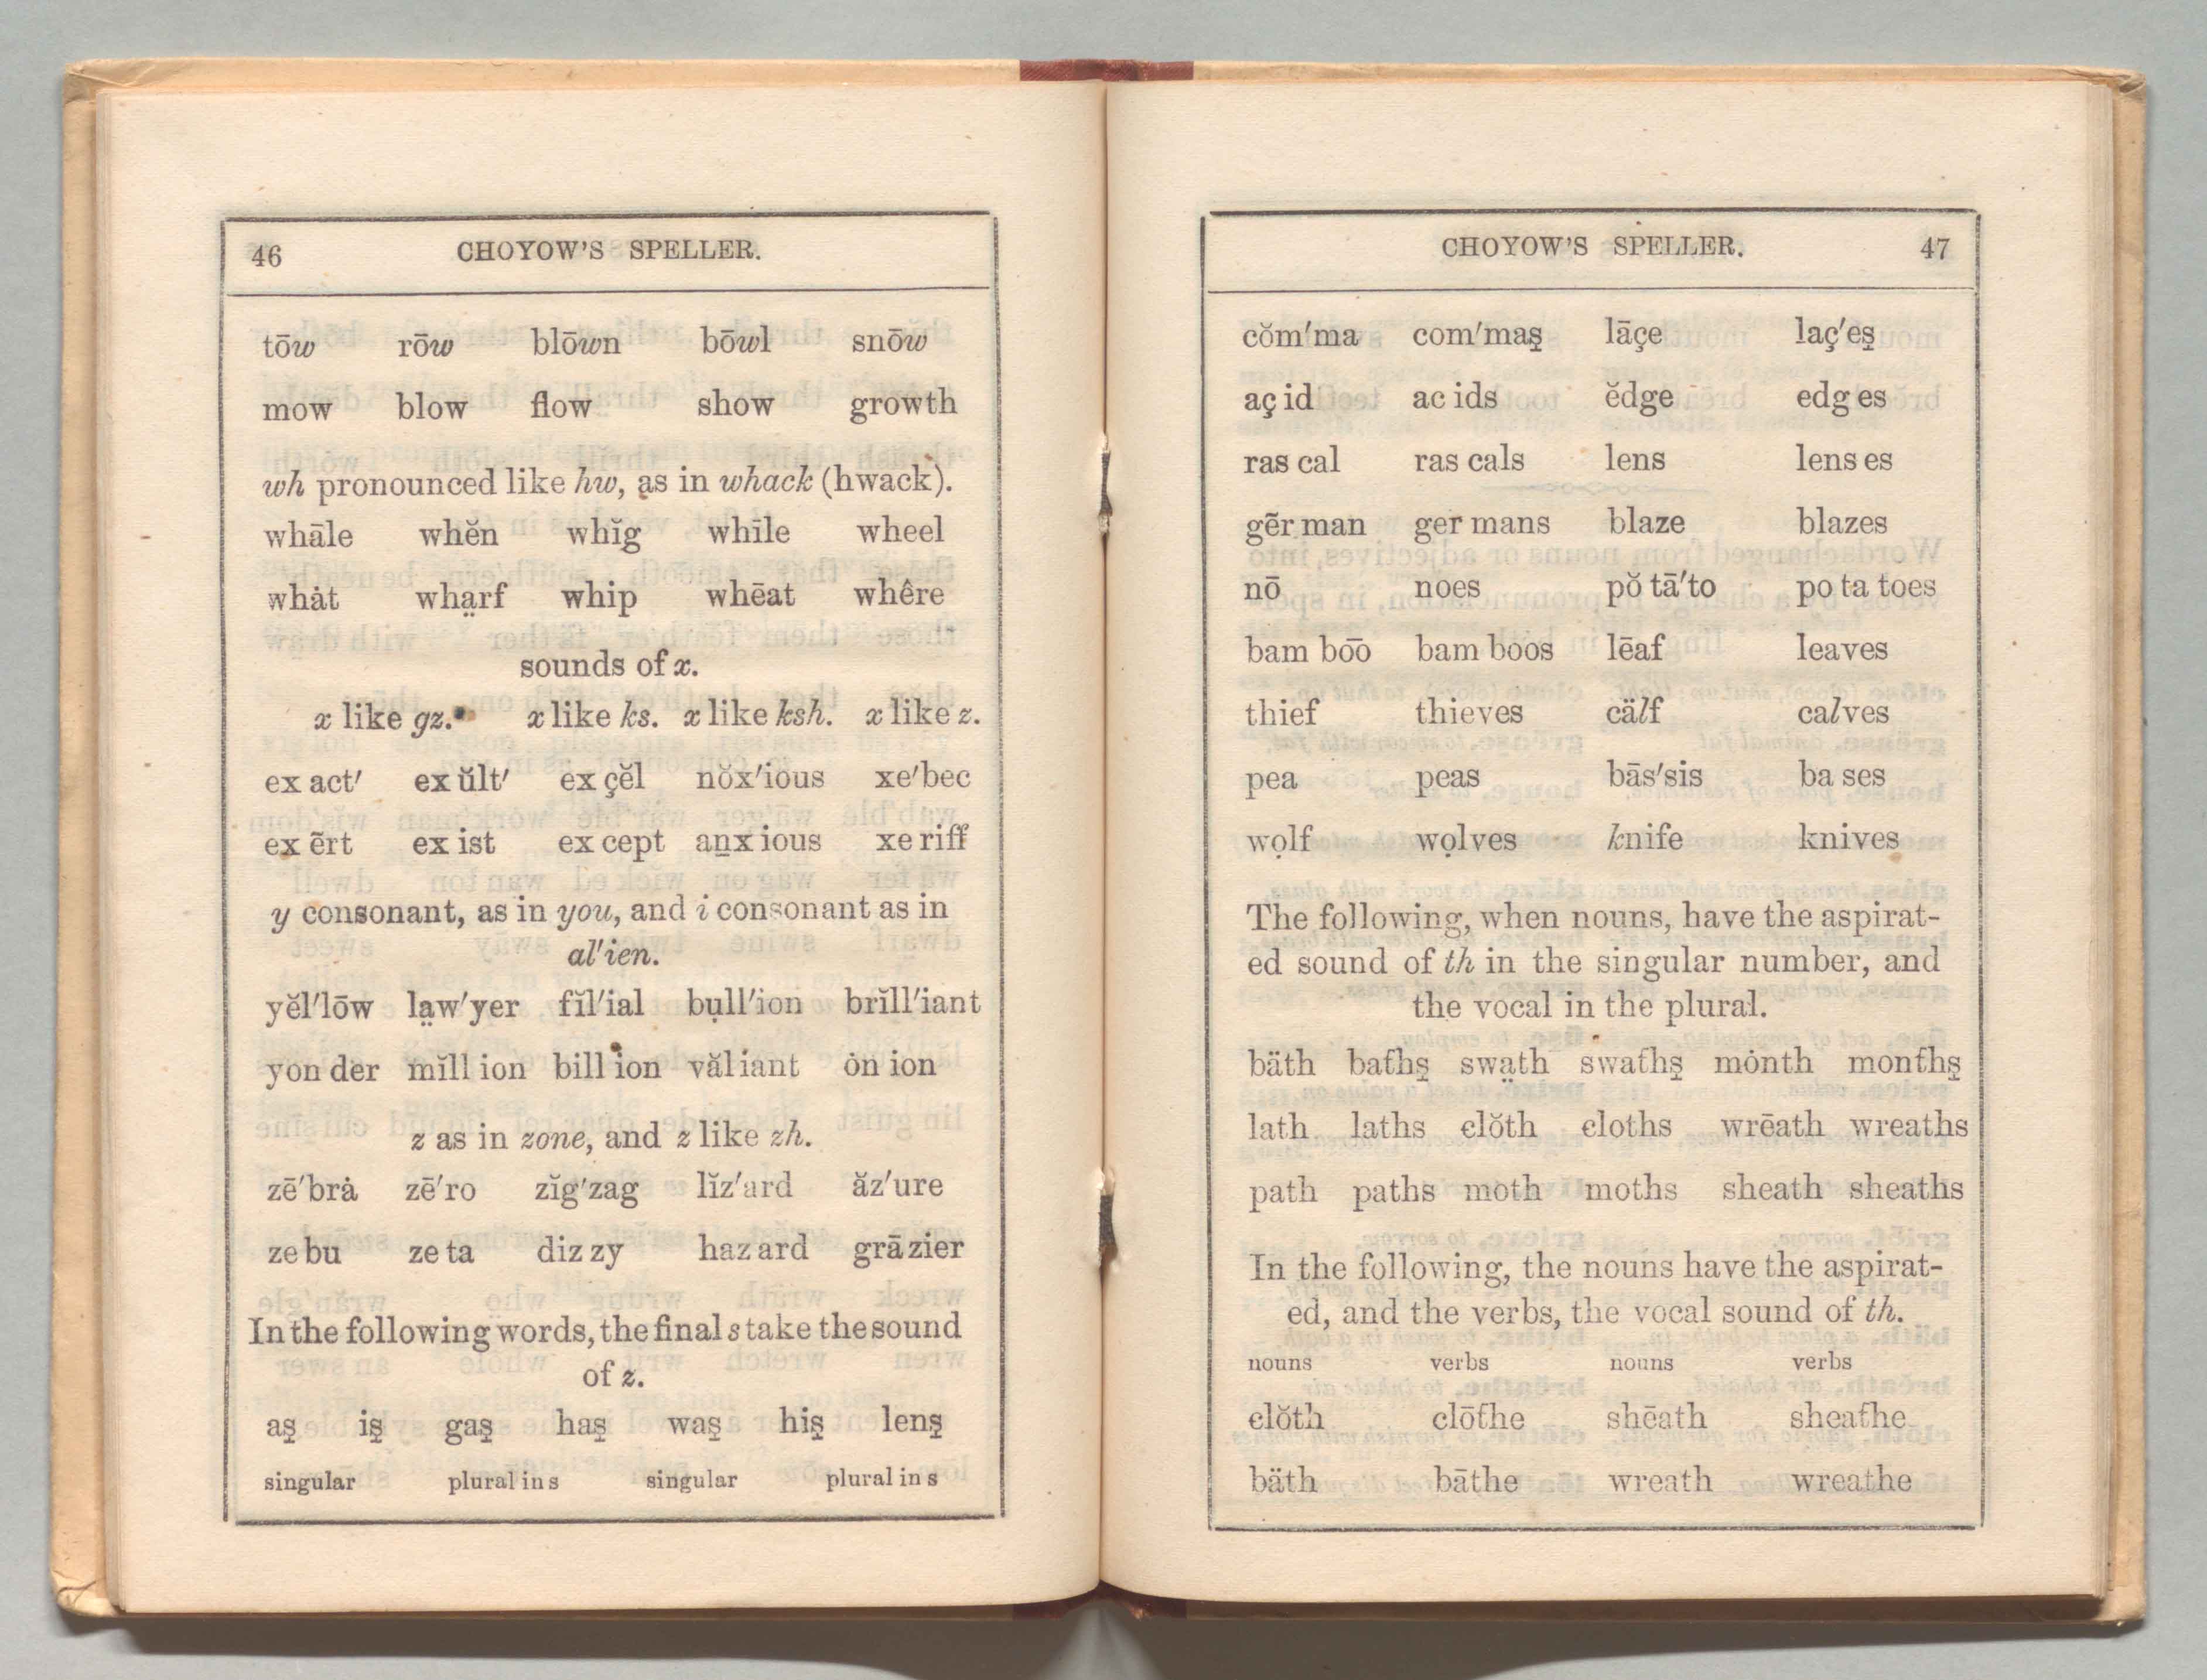 46 CHOYOW'S SPELLER.
tōw rōw blōwn bōwl snōw
mow blow flow show growth
wh pronounced like hw, as in whack (hwack).
whāle whĕn whĭg whīle wheel
whȧt wha̤rf whip whēat whêre
sounds of x.
x like gz. x like ks. x like ksh. x like z.
ex act′ ex ŭlt′ ex çĕl nŏx′ious xe′bec
ex ẽrt ex ist ex cept an̠x ious xe riff
y consonant, as in you, and i consonant as in
al′ien.
yĕl′lōw la̤w′yer fĭl′ial bṳll′ion brĭll′iant
yon der mĭll ion bill ion văl iant ȯn ion
z as in zone, and z like zh.
zē′brȧ zē′ro zĭg′zag lĭz′ard ăz′ure
ze bu ze ta diz zy haz ard grā zier
In the following words, the final s take the sound
of z.
aş iş gaş haş waş hiş lenş
singular plural in s singular plural in s
CHOYOW'S SPELLER. 47
cŏm′ma com′maş lāçe laç′eş
aç id ac ids ĕdge edg es
ras cal ras cals lens lens es
gẽr man ger mans blaze blazes
nō noes pŏ tā′to po ta toes
bam bōō bam boos lēaf leaves
thief thieves cälf calves
pea peas bās′sis ba ses
wọlf wọlves knife knives
The following, when nouns, have the aspirat-
ed sound of th in the singular number, and
the vocal in the plural.
bäth bathş swa̤th swathş mȯnth monthş
lath laths clŏth cloths wrēath wreaths
path paths moth moths sheath sheaths
In the following, the nouns have the aspirat-
ed, and the verbs, the vocal sound of th.
nouns verbs nouns verbs
clŏth clōthe shēath sheathe
bäth bāthe wreath wreathe